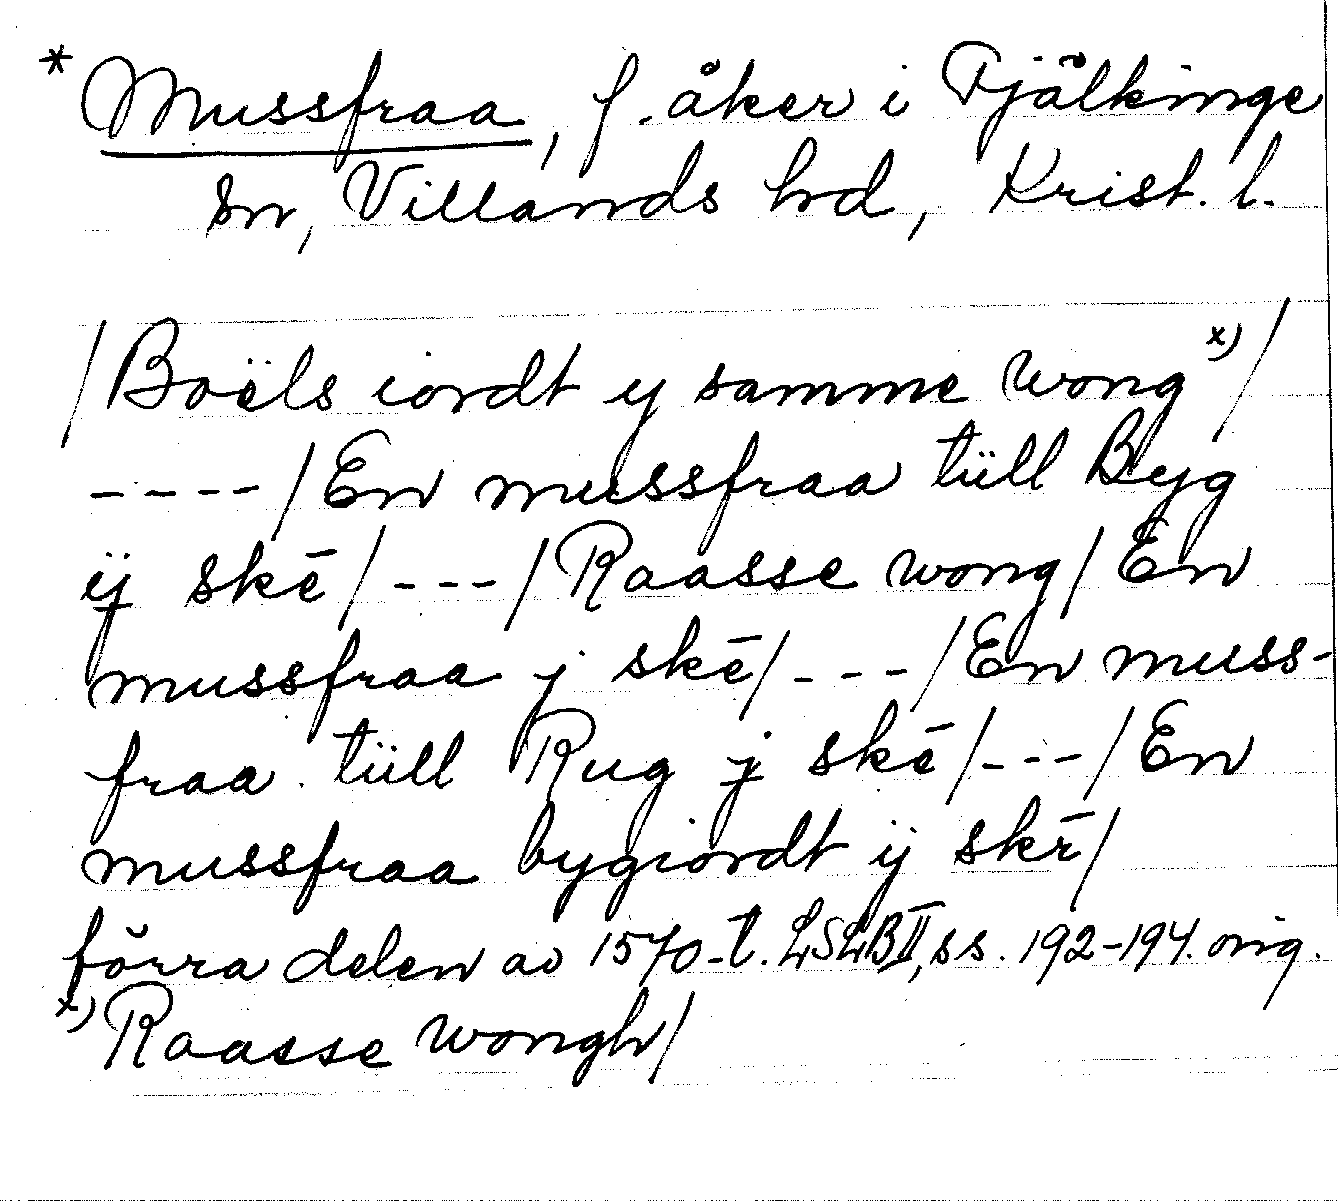 * Mussfraa, f. åker i Fjälkinge
sn, Villands hd, Krist. l.
/Boëls iordt y samme wong x)/
----/En mussfraa tüll Byg
ÿ skē/---/Raasse wong/En
mussfraa j skē/---/En muss-
fraa tüll Rug j skē/---/En
mussfraa bygiordt ij skē/
förra delen av 1570-t. LSLB II, ss. 192-194. orig.
x) Raasse wongh/